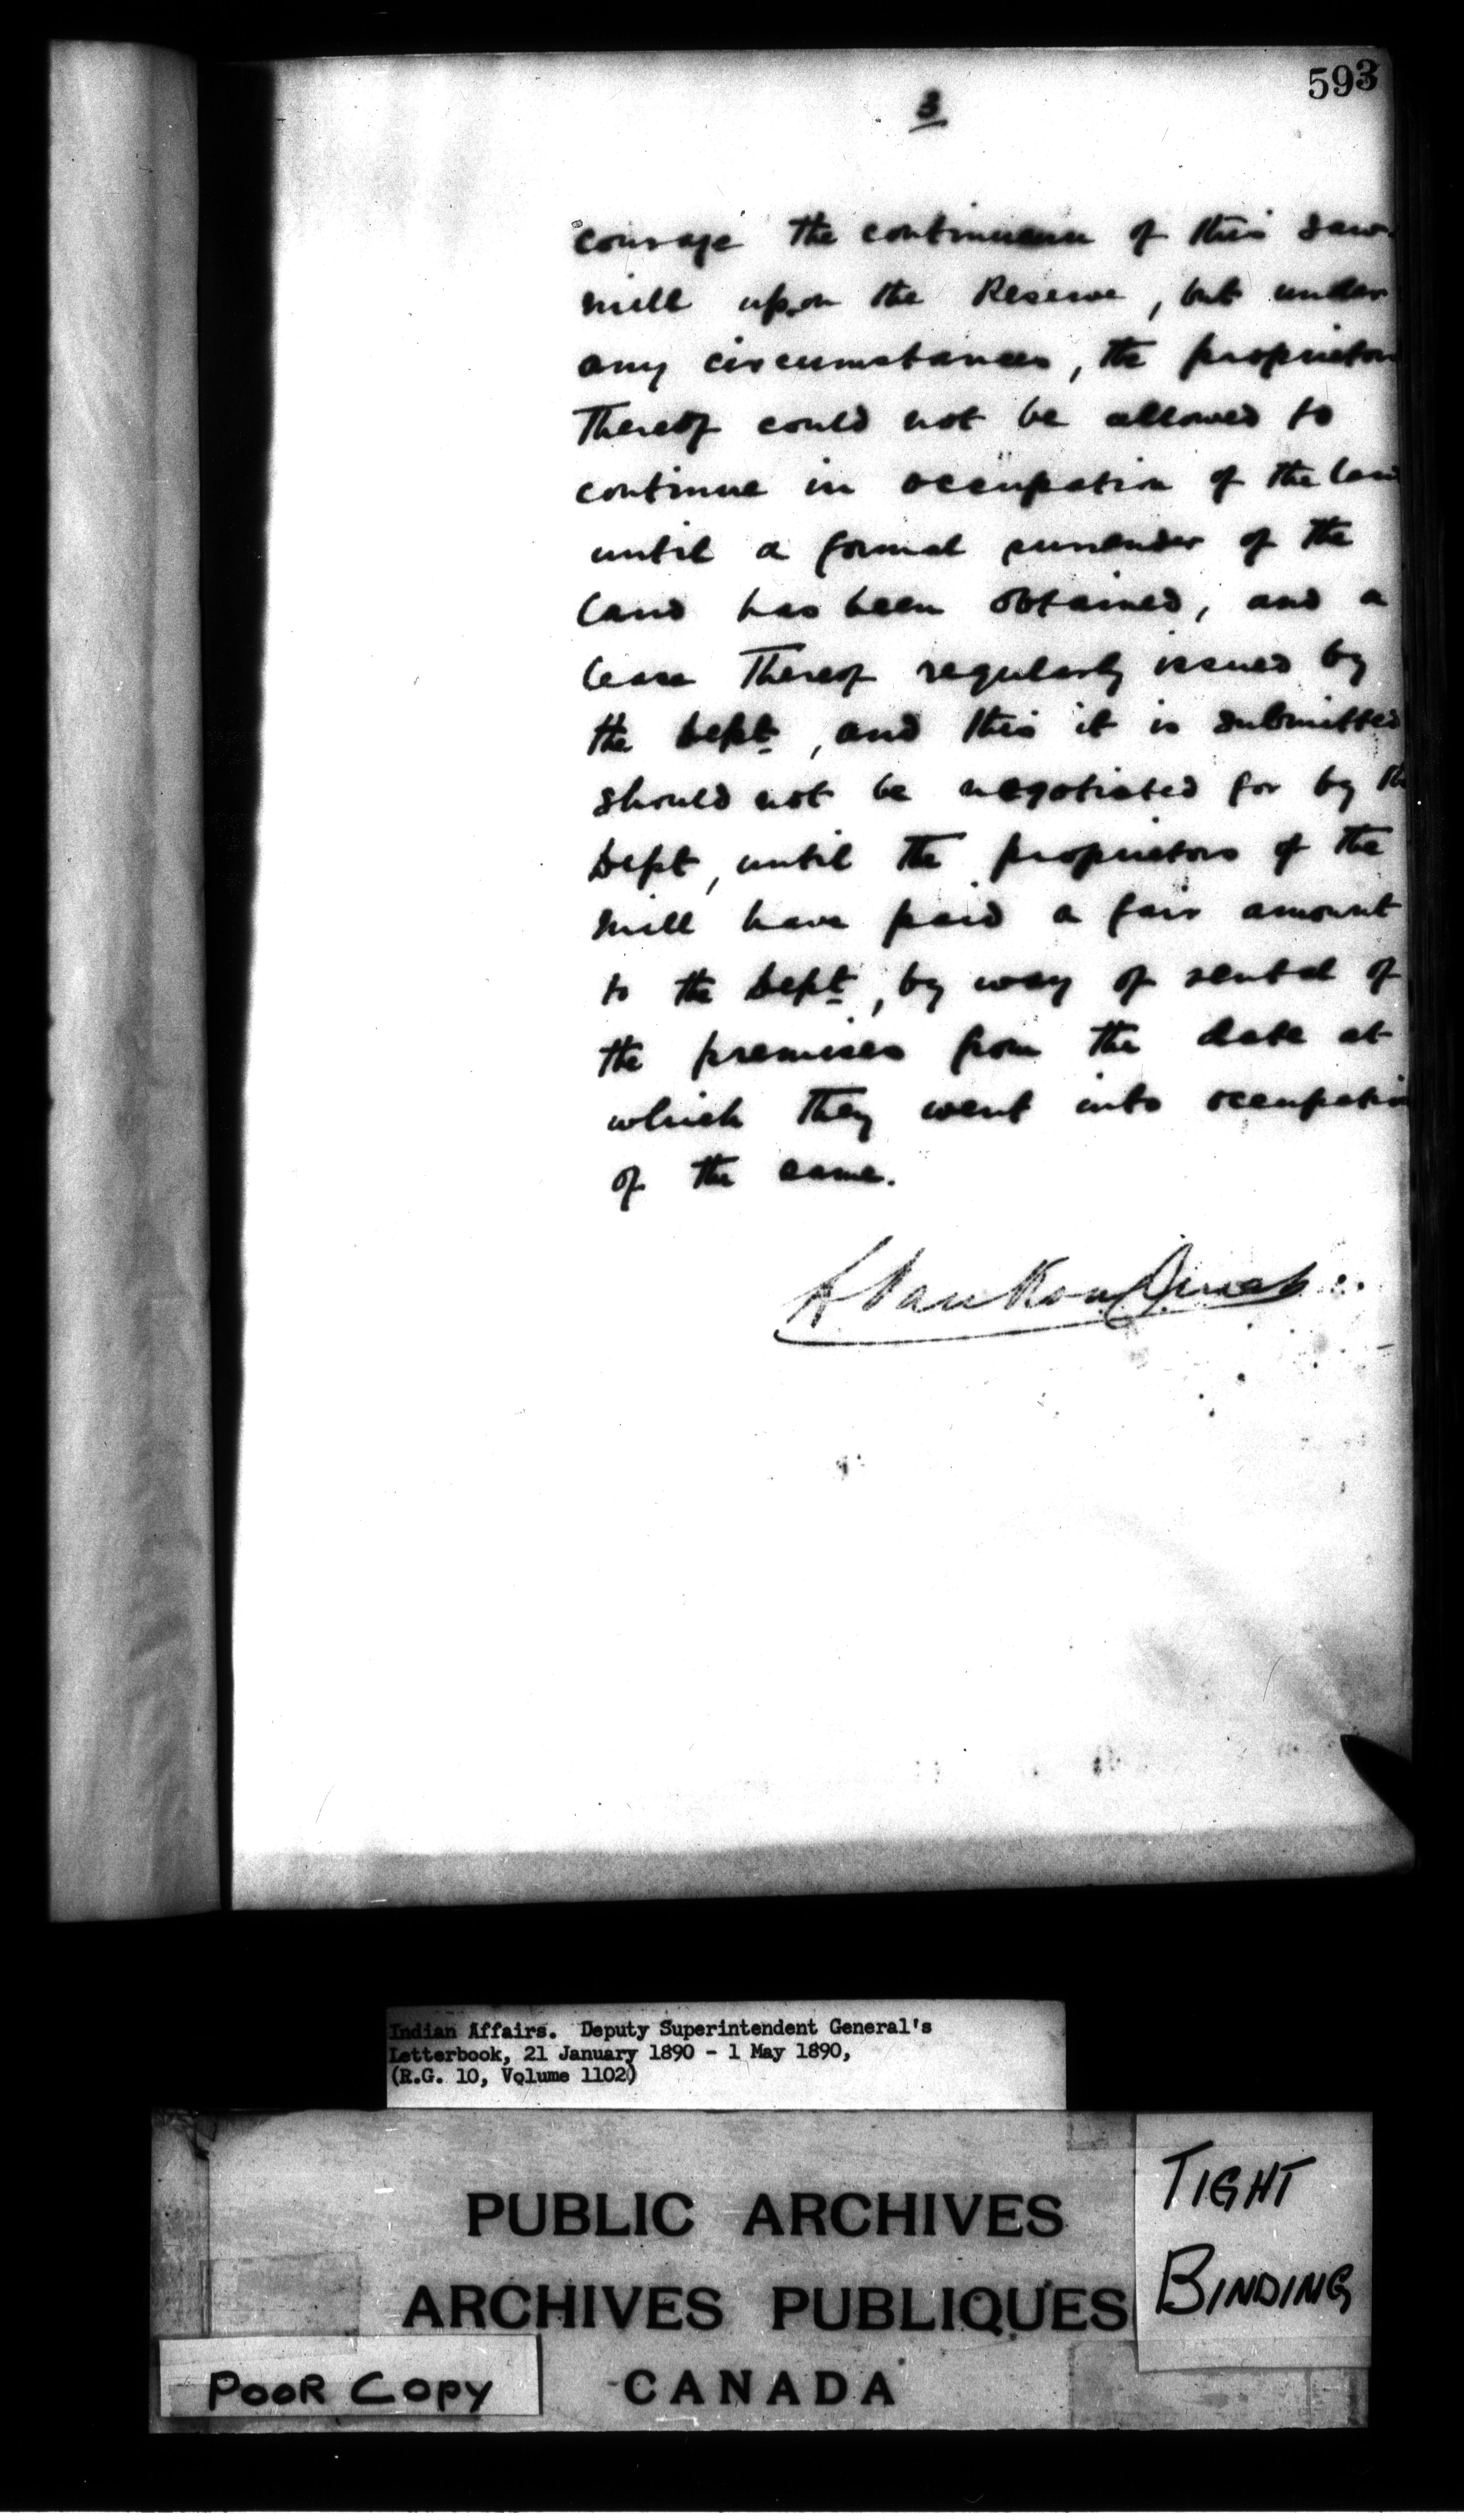 593
3
courage the continuance of this saw
mill upon the Reserve, but under
any circumstances, the proprietors
thereof could not be allowed to
continue in occupation of the land
until a formal surrender of the
land has been obtained, and a
lease thereof regularly issued by
the Dept, and this it is submitted
should not be negotiated for by the
Dept, until the proprietors of the
mill have paid a fair amount
to the Dept, by way of rental of
the premises from the date at
which they went into occupation
of the same.
L VanKoughnet
Indian Affairs. Deputy Superintendent General's
Letterbook, 21 January 1890 - 1 May 1890,
(R.G. 10, Volume 1102)
PUBLIC ARCHIVES
ARCHIVES PUBLIQUES
CANADA
TIGHT
BINDING
POOR COPY